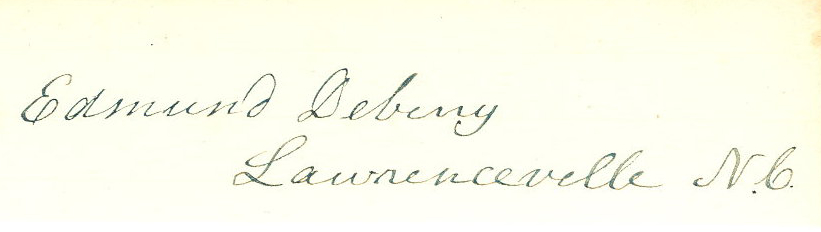 Edmund Deberry
Lawrenceville N.C.